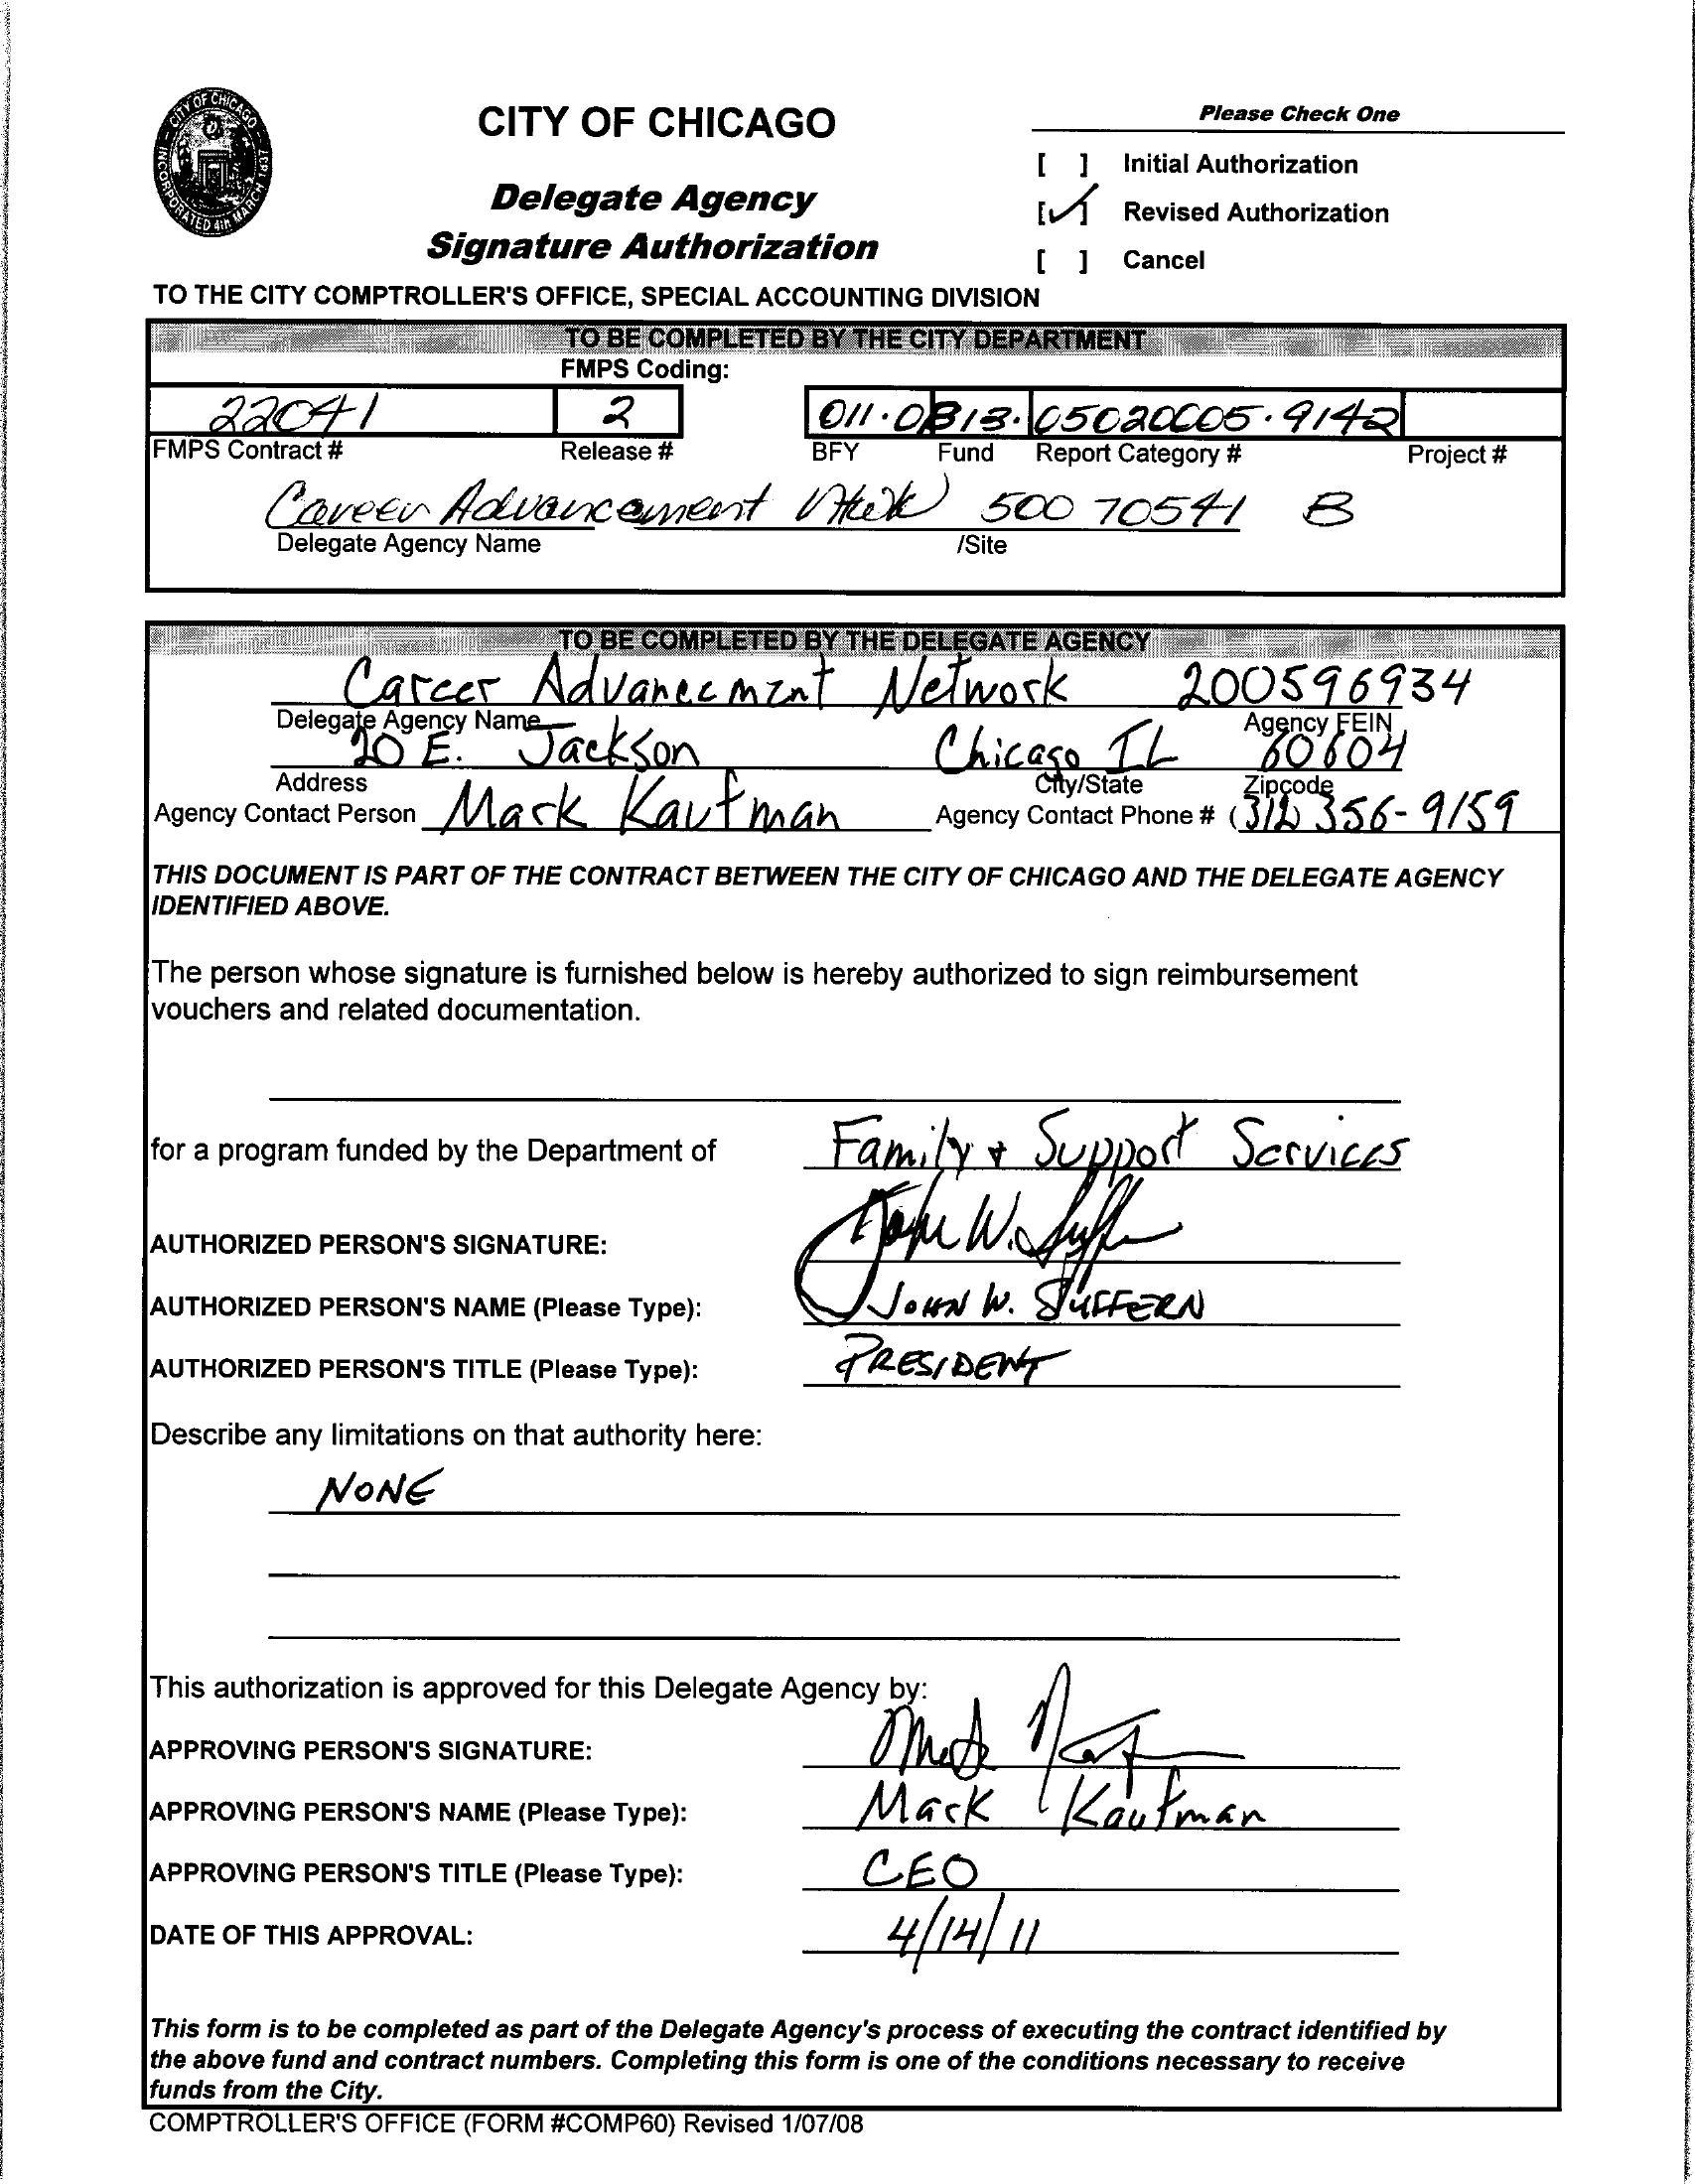 CITY OF CHICAGO
Delegate Agency
Signature Authorization
Please Check One
[ ] Initial Authorization
[✓] Revised Authorization
[ ] Cancel
CITY OF CHICAGO INCORPORATED 4th MARCH 1837
TO THE CITY COMPTROLLER'S OFFICE, SPECIAL ACCOUNTING DIVISION
TO BE COMPLETED BY THE CITY DEPARTMENT
FMPS Coding:
22041 2 011.0B13.05020005.9142
FMPS Contract # Release # BFY Fund Report Category # Project #
Career Advancement 500 70541 B
Delegate Agency Name /Site
TO BE COMPLETED BY THE DELEGATE AGENCY
Career Advancement Network 200596934
Delegate Agency Name Agency FEIN
20 E. Jackson Chicago IL 60604
Address City/State Zipcode
Agency Contact Person Mark Kaufman Agency Contact Phone # (312) 356-9159
THIS DOCUMENT IS PART OF THE CONTRACT BETWEEN THE CITY OF CHICAGO AND THE DELEGATE AGENCY
IDENTIFIED ABOVE.
The person whose signature is furnished below is hereby authorized to sign reimbursement
vouchers and related documentation.
for a program funded by the Department of Family + Support Services
AUTHORIZED PERSON'S SIGNATURE: John W. Suffern
AUTHORIZED PERSON'S NAME (Please Type): JOHN W. SUFFERN
AUTHORIZED PERSON'S TITLE (Please Type): PRESIDENT
Describe any limitations on that authority here:
NONE
This authorization is approved for this Delegate Agency by:
APPROVING PERSON'S SIGNATURE:
APPROVING PERSON'S NAME (Please Type): Mark Kaufman
APPROVING PERSON'S TITLE (Please Type): CEO
DATE OF THIS APPROVAL: 4/14/11
This form is to be completed as part of the Delegate Agency's process of executing the contract identified by
the above fund and contract numbers. Completing this form is one of the conditions necessary to receive
funds from the City.
COMPTROLLER'S OFFICE (FORM #COMP60) Revised 1/07/08